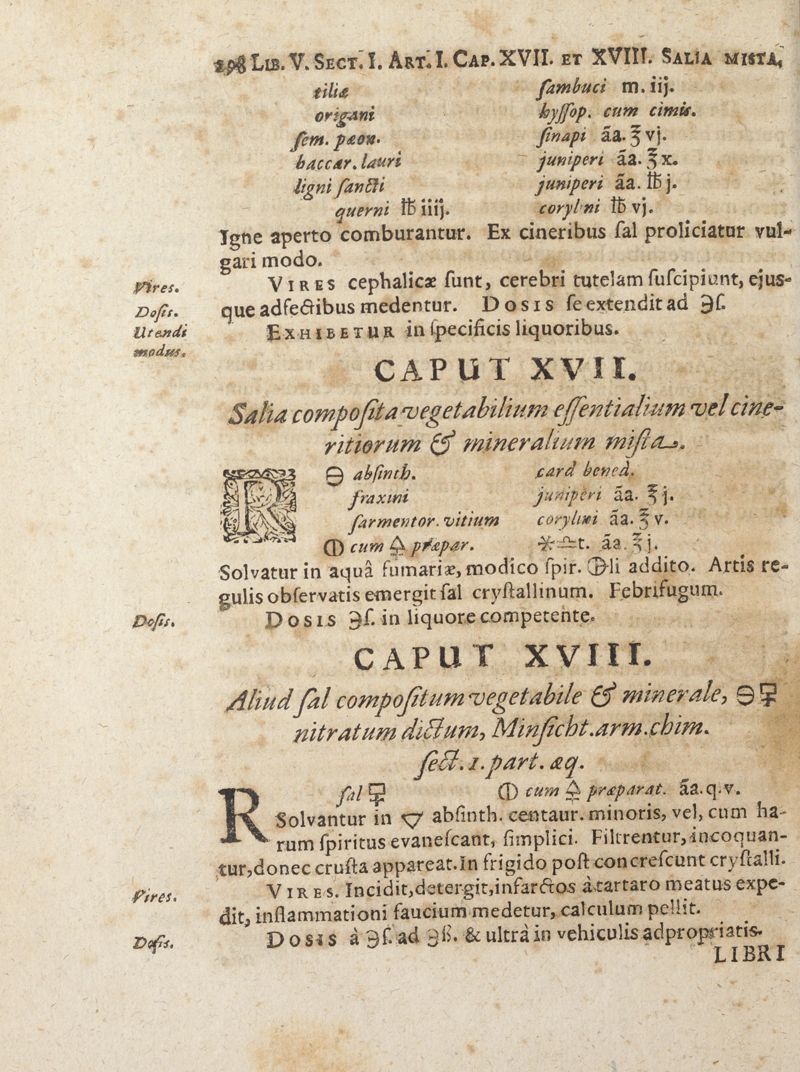 198 LIB. V. SECT. I. ART. I. CAP. XVII. ET XVIII. SALIA MISTA,
tiliæ ſambuci m. iij.
origani hyſſop. cum cimis.
ſem. pæon. ſinapi ãa. ℥ vj.
baccar. lauri juniperi ãa. ℥ x.
ligni ſancti juniperi ãa. ℔ j.
querni ℔ iiij. corylini ℔ vj.
Igne aperto comburantur. Ex cineribus ſal proliciatur vul-
gari modo.
Vires. VIRES cephalicæ ſunt, cerebri tutelam ſuſcipiunt, ejus-
Doſis. que adfectibus medentur. DOSIS ſe extendit ad ℈ſ.
Utendi modus. EXHIBETUR in ſpecificis liquoribus.
CAPUT XVII.
Salia compoſita vegetabilium eſſentialium vel cine-
ritiorum & mineralium miſta.
R 🜔 abſinth. card bened.
fraxini juniperi ãa. ℥ j.
ſarmentor. vitium corylini ãa. ℥ v.
🜕 cum 🜍 præpar. 🜹t. ãa. ℥ j.
Solvatur in aquâ fumariæ, modico ſpir. 🜖li addito. Artis re-
gulis obſervatis emergit ſal cryſtallinum. Febrifugum.
Doſis. DOSIS ℈ſ. in liquore competente.
CAPUT XVIII.
Aliud ſal compoſitum vegetabile & minerale, 🜔 🜿
nitratum dictum, Minſicht. arm. chim.
ſect. 1. part. æq.
R ſal 🜿 🜕 cum 🜍 præparat. ãa. q. v.
Solvantur in 🜄 abſinth. centaur. minoris, vel, cum ha-
rum ſpiritus evaneſcant, ſimplici. Filtrentur, incoquan-
tur, donec cruſta appareat. In frigido poſt concreſcunt cryſtalli.
Vires. VIRES. Incidit, detergit, infarctos à tartaro meatus expe-
dit, inflammationi faucium medetur, calculum pellit.
Doſis. DOSIS à ℈ſ. ad ℈ß. & ultrà in vehiculis adpropriatis.
LIBRI